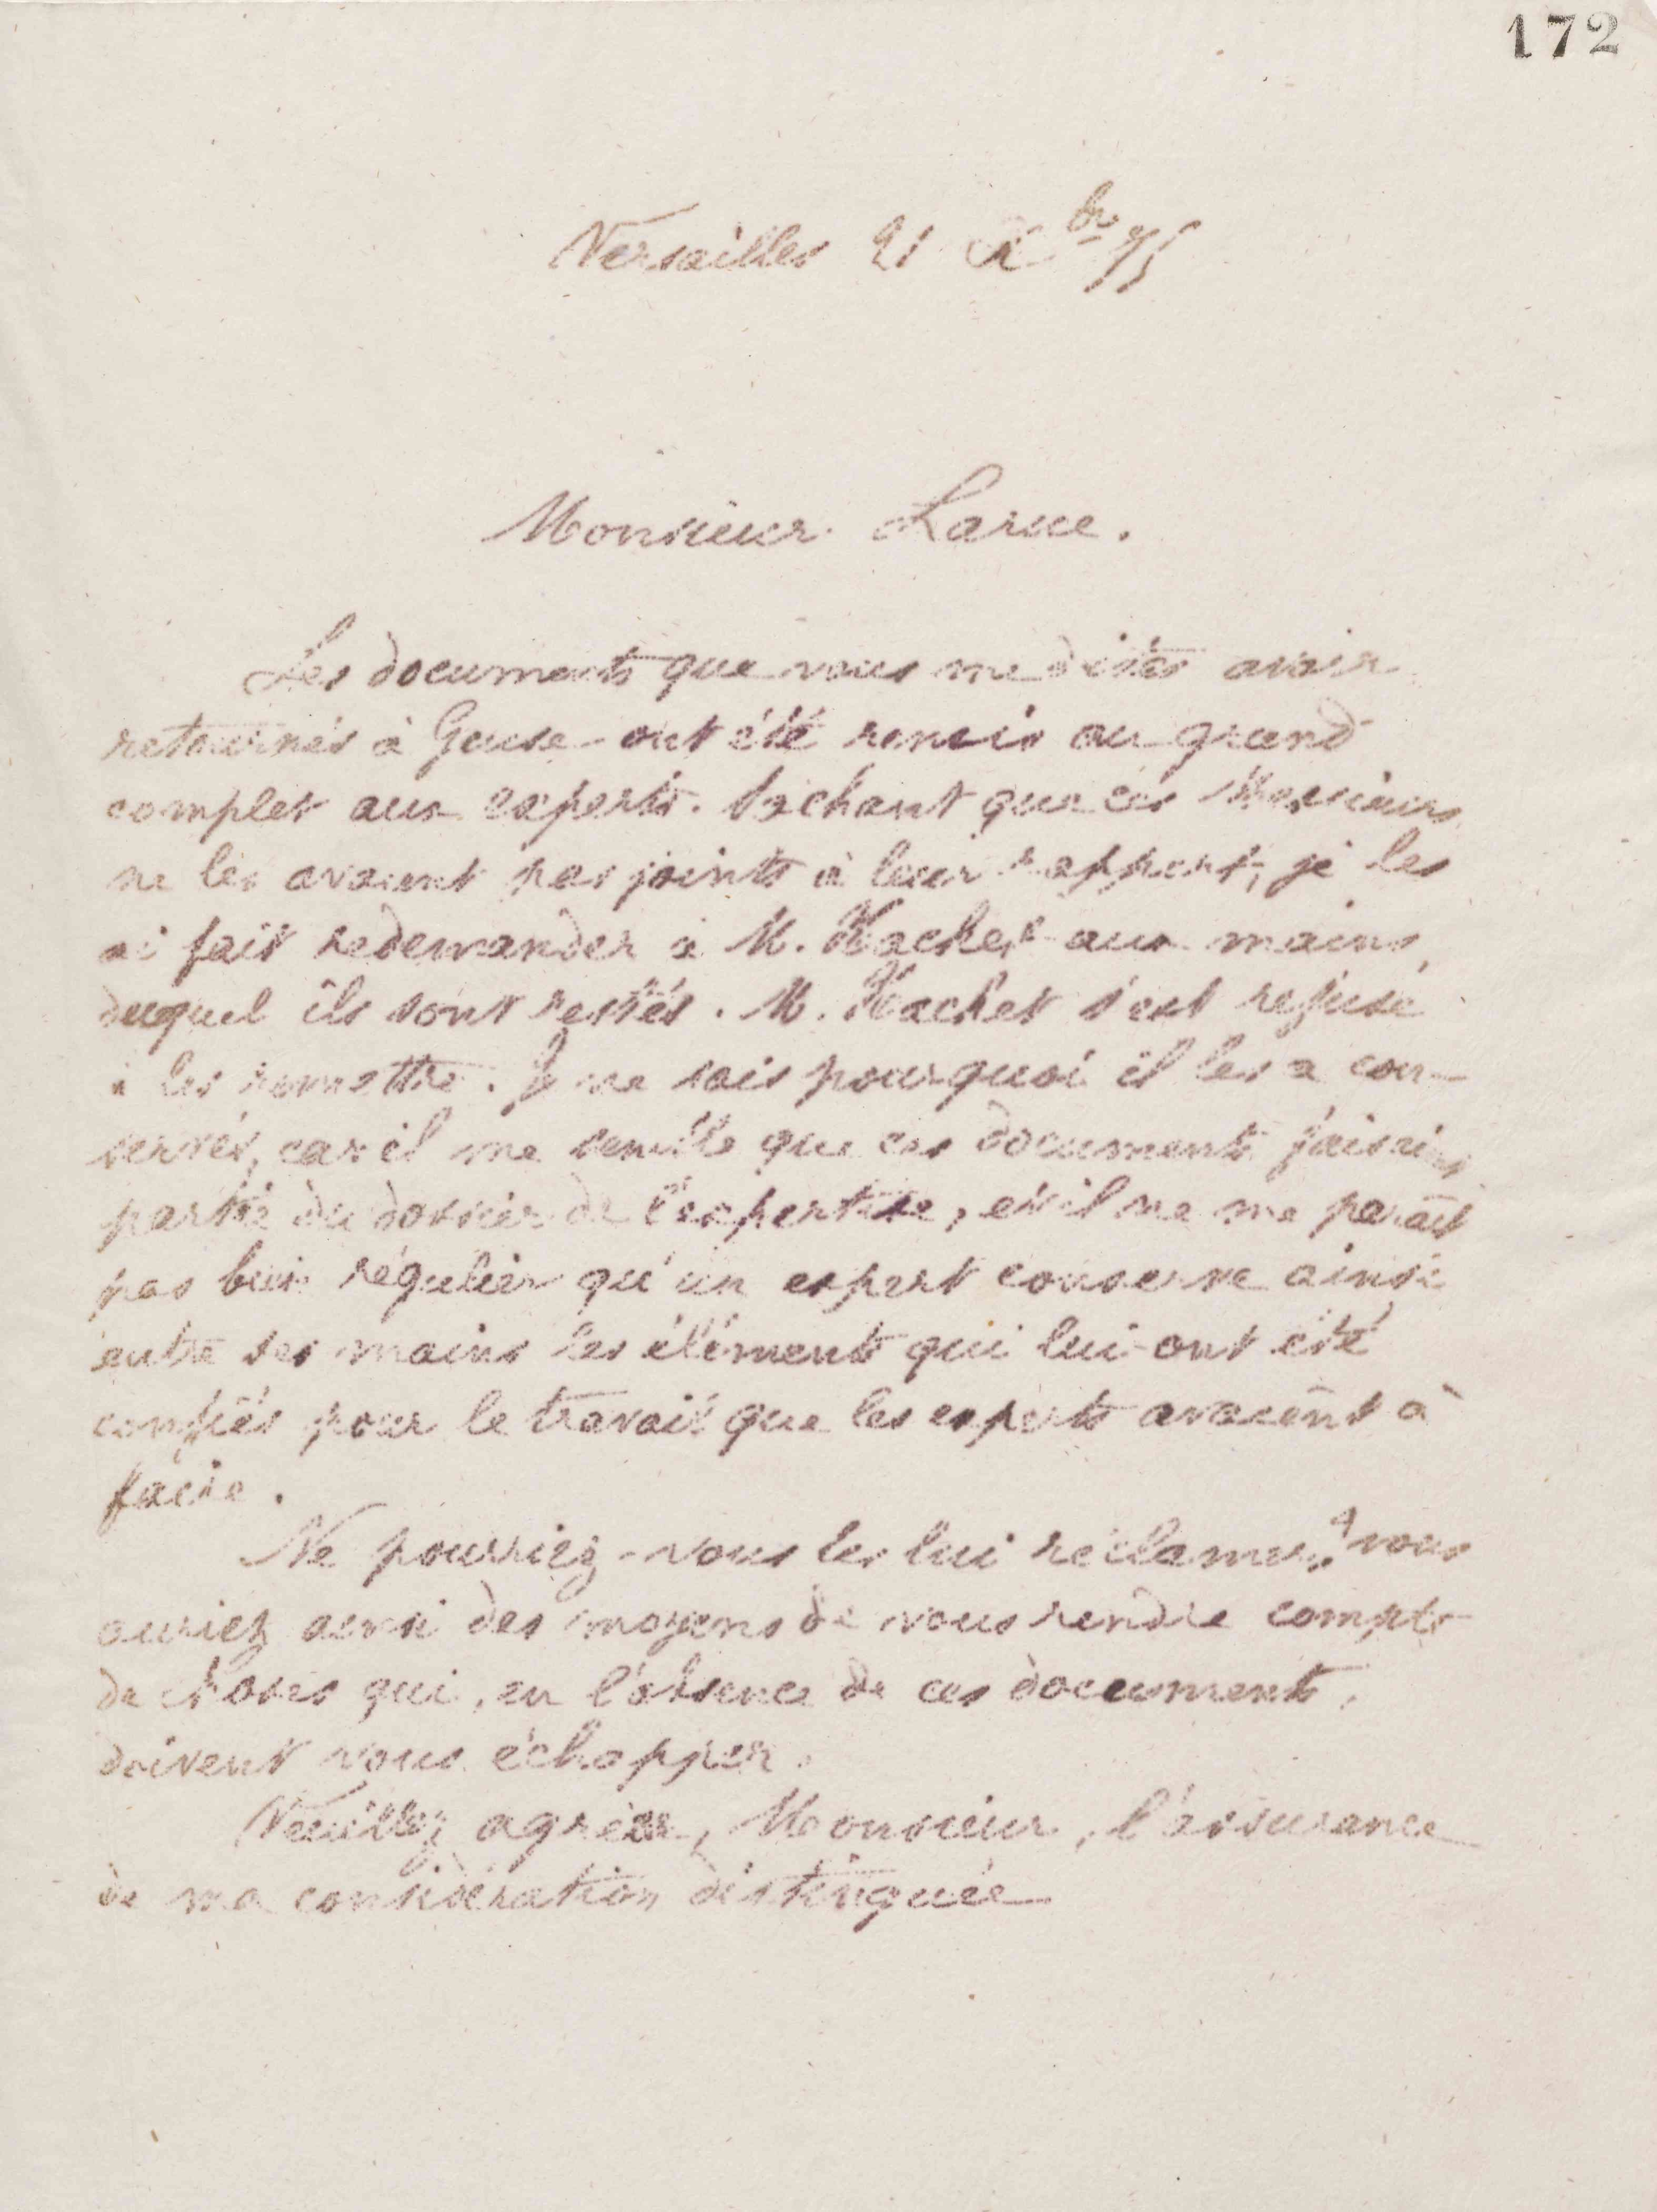 172
Versailles 21 Xbre 75
Monsieur Larue.
Les documents que vous me dites avoir
retournés à Guise ont été remis au grand
complet aux experts. Sachant que ces Messieurs
ne les avaient pas joints à leur rapport, je les
ai fait redemander à M. Hacher aux mains
duquel ils sont restés. M. Hacher s'est refusé
à les remettre. Je ne sais pourquoi il les a con-
servés, car il me semble que ces documents faisaient
partie du dossier de l'expertise, et il ne me paraît
pas bien régulier qu'un expert conserve ainsi
entre ses mains les éléments qui lui ont été
confiés pour le travail que les experts avaient à
faire.
Ne pourriez-vous les lui réclamer? vous
auriez ainsi des moyens de vous rendre compte
de choses qui, en l'absence de ces documents,
doivent vous échapper.
Veuillez agréer, Monsieur, l'assurance
de ma considération distinguée